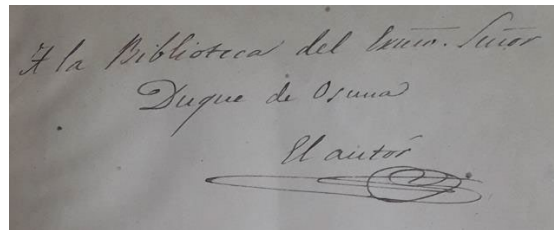 A la Biblioteca del Exmo. Señor
Duque de Osuna
El autór